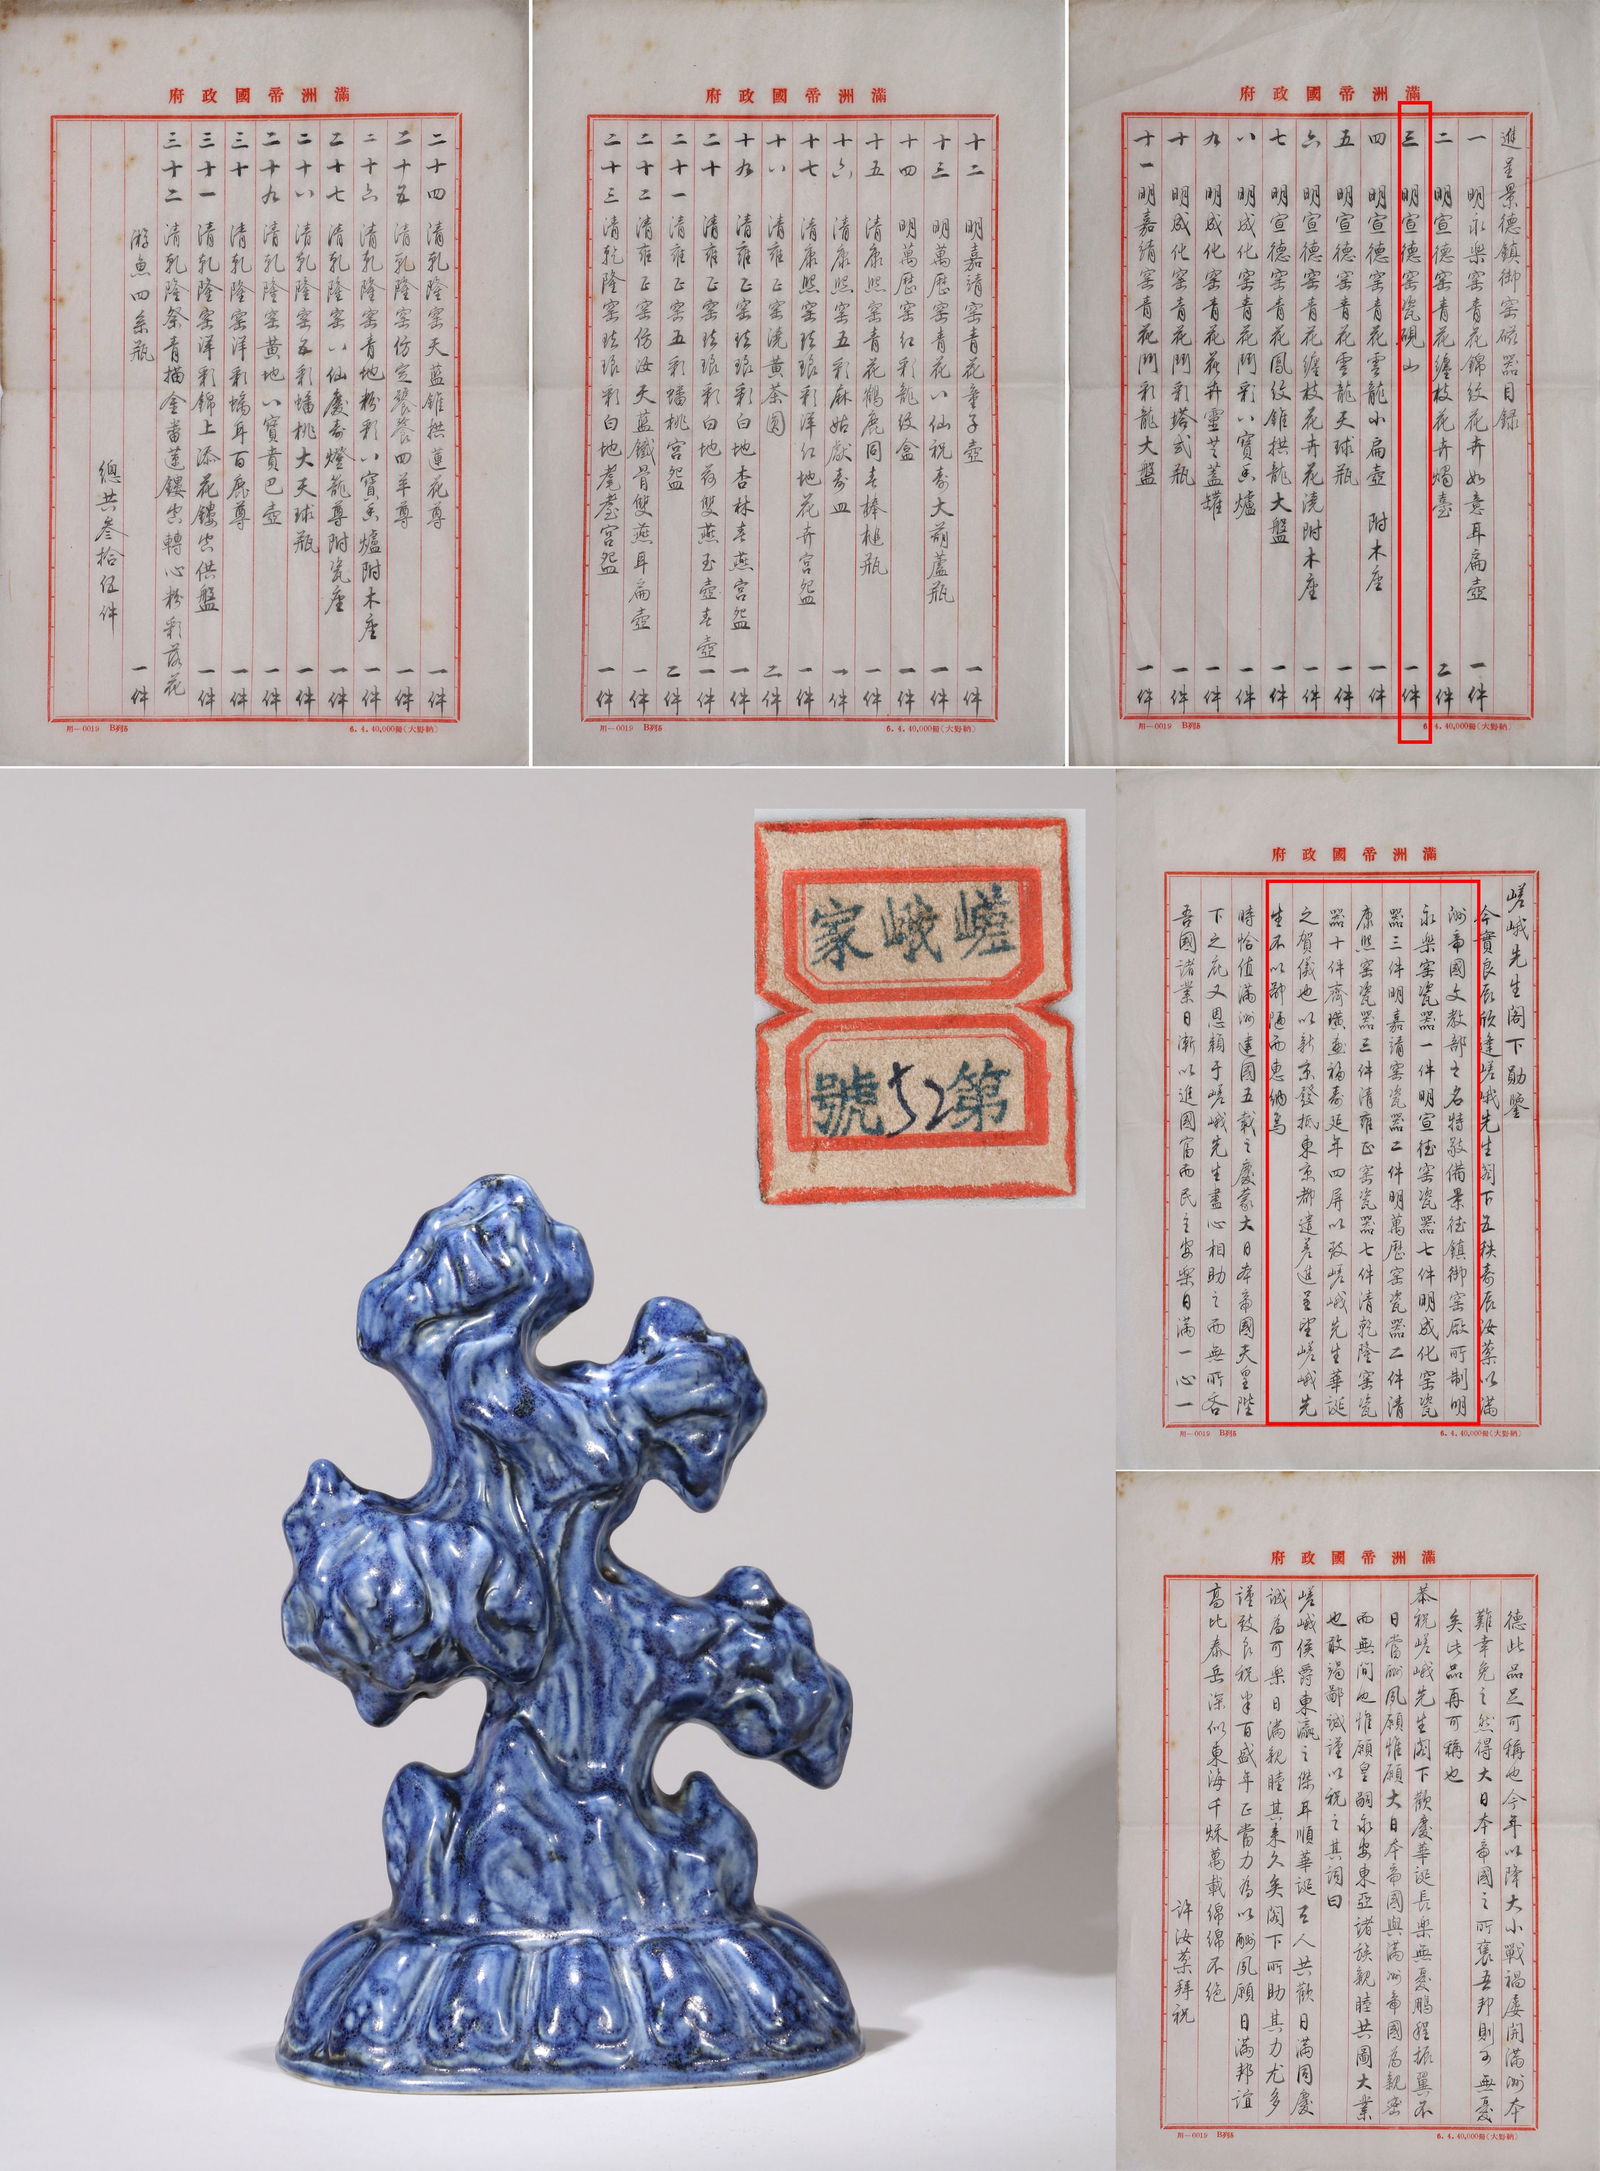 滿洲帝國政府
進呈景德鎮御窑磁器目録
一 明永樂窑青花錦紋花卉如意耳扁壺 一件
二 明宣德窑青花纏枝花卉燭臺 二件
三 明宣德窑瓷硯山 一件
四 明宣德窑青花雲龍小扁壺 附木座 一件
五 明宣德窑青花雲龍天球瓶 一件
六 明宣德窑青花纏枝花卉花澆附木座 一件
七 明宣德窑青花鳳紋錐拱龍大盤 一件
八 明成化窑青花鬥彩八寶香爐 一件
九 明成化窑青花花卉靈芝蓋罐 一件
十 明成化窑青花鬥彩塔式瓶 一件
十一 明嘉靖窑青花鬥彩龍大盤 一件
用—0019 B列5
6.4.40,000冊(大野納)
滿洲帝國政府
十二 明嘉靖窑青花童子壺 一件
十三 明萬歷窑青花八仙祝壽大葫蘆瓶 一件
十四 明萬歷窑紅彩龍紋盒 一件
十五 清康熙窑青花鶴鹿同春棒槌瓶 一件
十六 清康熙窑五彩麻姑獻壽皿 一件
十七 清康熙窑珐琅彩洋红地花卉宮盌 一件
十八 清雍正窑澆黄茶圓 二件
十九 清雍正窑珐琅彩白地杏林春燕宮盌 一件
二十 清雍正窑珐琅彩白地荷雙燕玉壺春壺 一件
二十一 清雍正窑五彩蟠桃宮盌 二件
二十二 清雍正窑仿汝天蓝鐵骨雙燕耳扁壺 一件
二十三 清乾隆窑珐琅彩白地耄耋宮盌 一件
用—0019 B列5
6.4.40,000冊(大野納)
滿洲帝國政府
二十四 清乾隆窑天蓝錐拱蓮花尊 一件
二十五 清乾隆窑仿定饕餮四羊尊 一件
二十六 清乾隆窑青地粉彩八寶香爐附木座 一件
二十七 清乾隆窑八仙慶壽燈籠尊附瓷座 一件
二十八 清乾隆窑五彩蟠桃大天球瓶 一件
二十九 清乾隆窑黄地八寶賁巴壺 一件
三十 清乾隆窑洋彩螭耳百鹿尊 一件
三十一 清乾隆窑洋彩錦上添花鏤空供盤 一件
三十二 清乾隆祭青描金番蓮鏤空轉心粉彩落花
游魚四系瓶 一件
總共叁拾伍件
用—0019 B列5
6.4.40,000冊(大野納)
嵯峨家
第52號
滿洲帝國政府
嵯峨先生閣下勛鑒
今實良辰欣逢嵯峨先生閣下五秩壽辰汝棻以滿
洲帝國文教部之名特敬備景德鎮御窑厰所制明
永樂窑瓷器一件明宣德窑瓷器七件明成化窑瓷
器三件明嘉靖窑瓷器二件明萬歷窑瓷器二件清
康熙窑瓷器三件清雍正窑瓷器七件清乾隆窑瓷
器十件齊璜畫福壽延年四屏以致嵯峨先生華誕
之賀儀也以新京發抵東京都遣差進呈望嵯峨先
生不以鄙陋而惠納焉
時恰值滿洲建國五載之慶蒙大日本帝國天皇陛
下之庇又恩賴于嵯峨先生盡心相助之而無所吝
吾國諸業日漸以進國富而民主安樂日滿一心一
用—0019 B列5
6.4.40,000冊(大野納)
滿洲帝國政府
德此品足可稱也今年以降大小戰禍屢開滿洲本
難幸免之然得大日本帝國之所褒吾邦則可無憂
矣此品再可稱也
恭祝嵯峨先生閣下歡慶華誕長樂無憂鵬程振翼不
日當酬夙願惟願大日本帝國與滿洲帝國為親密
而無間也惟願皇嗣永安東亞諸族親睦共圖大業
也敢竭鄙誠謹以祝之其詞曰
嵯峨侯爵東瀛之傑耳順華誕互人共歡日滿同慶
誠為可樂日滿親睦其来久矣閣下所助其力尤多
謹致良祝半百盛年正當力為以酬夙願日滿邦誼
高比泰岳深似東海千秭萬載綿綿不绝
許汝棻拜祝
用—0019 B列5
6.4.40,000冊(大野納)